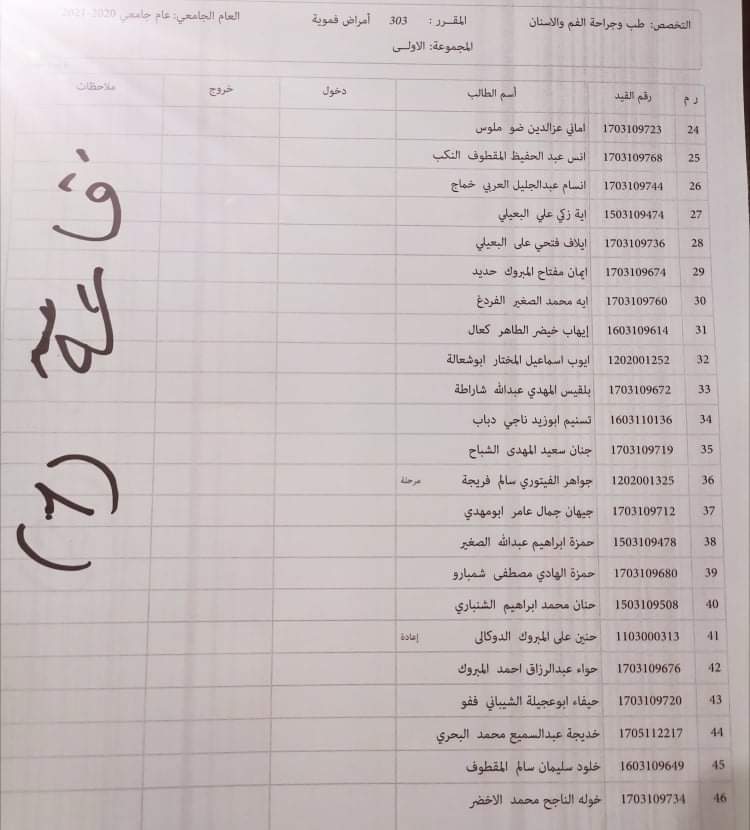 التخصص: طب وجراحة الفم والاسنان المقـرر : 303 أمراض فموية العام الجامعي: عام جامعي 2020-2021
المجموعة: الاولـى
ر م رقم القيد أسم الطالب دخول خروج ملاحظات
24 1703109723 اماني عزالدين ضو ملوس
25 1703109768 انس عبد الحفيظ المقطوف النكب
26 1703109744 انسام عبدالجليل العربي خماج
27 1503109474 اية زكي علي البعيلي
28 1703109736 ايلاف فتحي على البعيلي
29 1703109674 ايمان مفتاح المبروك حديد
30 1703109760 ايه محمد الصغير الفردغ
31 1603109614 إيهاب خيضر الطاهر كعال
32 1202001252 ايوب اسماعيل المختار ابوشعالة
33 1703109672 بلقيس المهدي عبدالله شاراطة
34 1603110136 تسنيم ابوزيد ناجي دباب
35 1703109719 جنان سعيد المهدى الشباح
36 1202001325 جواهر الفيتوري سالم فريجة مرحلة
37 1703109712 جيهان جمال عامر ابومهدي
38 1503109478 حمزة ابراهيم عبدالله الصغير
39 1703109680 حمزة الهادي مصطفى شمبارو
40 1503109508 حنان محمد ابراهيم الشنباري
41 1103000313 حنين على المبروك الدوكالى إعادة
42 1703109676 حواء عبدالرزاق احمد المبروك
43 1703109720 حيفاء ابوعجيلة الشيباني ففو
44 1705112217 خديجة عبدالسميع محمد البحري
45 1603109649 خلود سليمان سالم المقطوف
46 1703109734 خوله الناجح محمد الاخضر